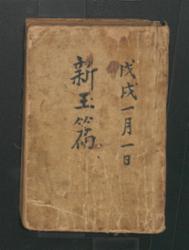 戊戌一月一日
新玉篇